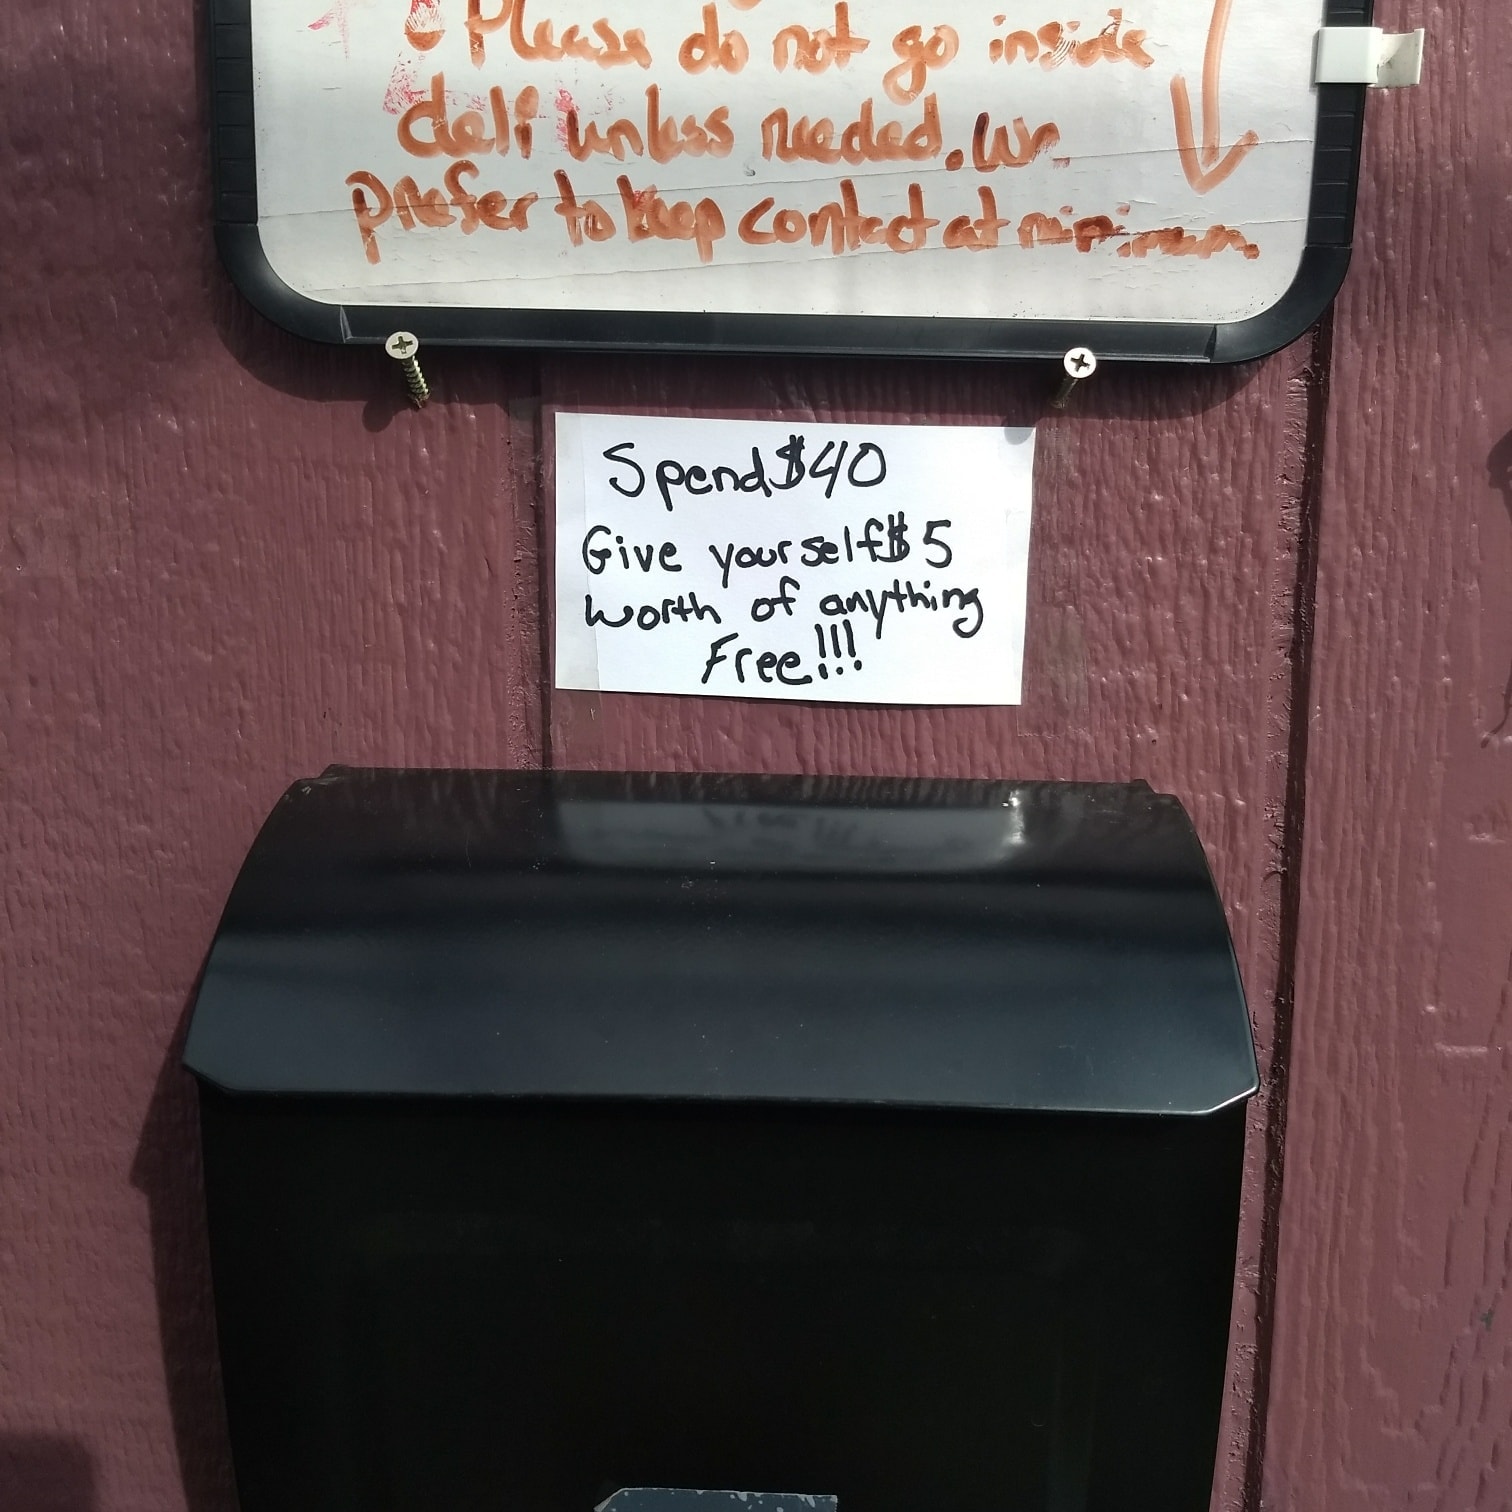 Please do not go inside
deli unless needed. We
prefer to keep contact at minimum.
Spend $40
Give yourself $5
worth of anything
Free!!!